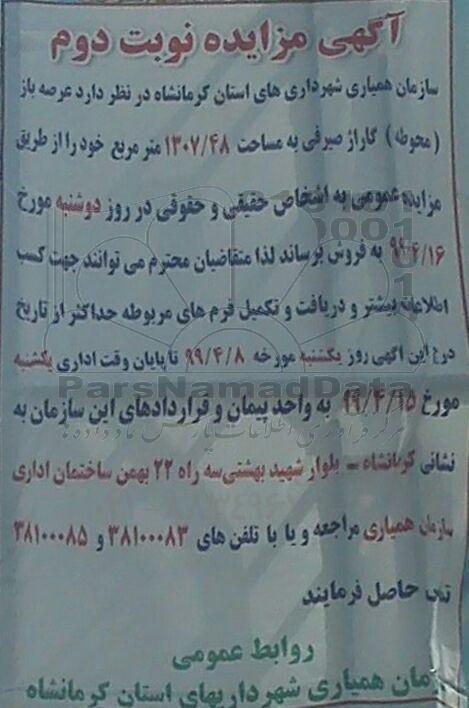 آگهی مزایده نوبت دوم
سازمان همیاری شهرداری های استان کرمانشاه در نظر دارد عرصه باز
(محوطه) گاراژ صیرفی به مساحت ۱۳۰۷/۴۸ متر مربع خود را از طریق
مزایده عمومی به اشخاص حقیقی و حقوقی در روز دوشنبه مورخ
۹۹/۴/۱۶ به فروش برساند لذا متقاضیان محترم می توانند جهت کسب
اطلاعات بیشتر و دریافت و تکمیل فرم های مربوطه حداکثر از تاریخ
درج این آگهی روز یکشنبه مورخه ۹۹/۴/۸ تا پایان وقت اداری یکشنبه
مورخ ۹۹/۴/۱۵ به واحد پیمان و قراردادهای این سازمان به
نشانی کرمانشاه – بلوار شهید بهشتی سه راه ۲۲ بهمن ساختمان اداری
سازمان همیاری مراجعه و یا با تلفن های ۳۸۱۰۰۰۸۳ و ۳۸۱۰۰۰۸۵
حاصل فرمایند
روابط عمومی
همیاری شهرداریهای استان کرمانشاه
ParsNamadData